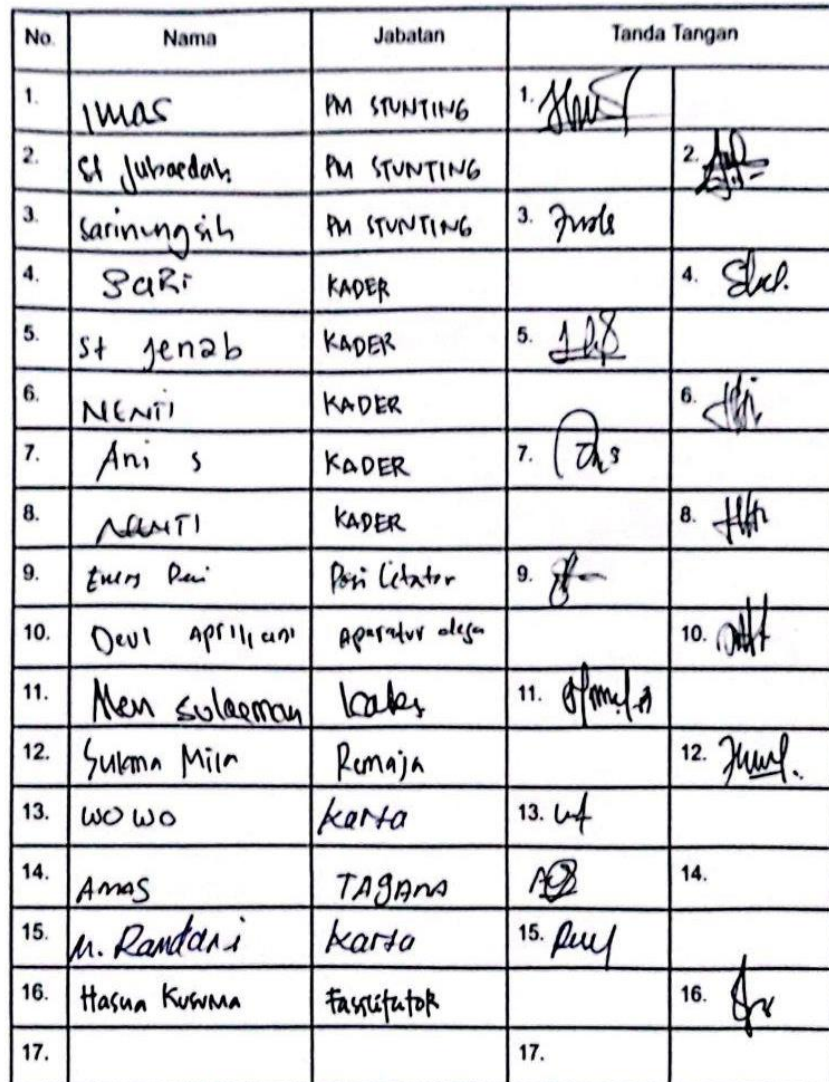 No. Nama Jabatan Tanda Tangan
1. Imas PM STUNTING 1.
2. St Jubaedah PM STUNTING 2.
3. Sarinungsih PM STUNTING 3.
4. SARi KADER 4.
5. St Jenab KADER 5.
6. NENTi KADER 6.
7. Ani s KADER 7.
8. NANTI KADER 8.
9. 9.
10. Devi Apriliani Aparatur desa 10.
11. sulaeman 11.
12. Sukma Mila Remaja 12.
13. wowo karta 13.
14. AMAS TAGANA 14.
15. M. Ramdani karta 15.
16. Hasna Kusuma Fasilitator 16.
17. 17.